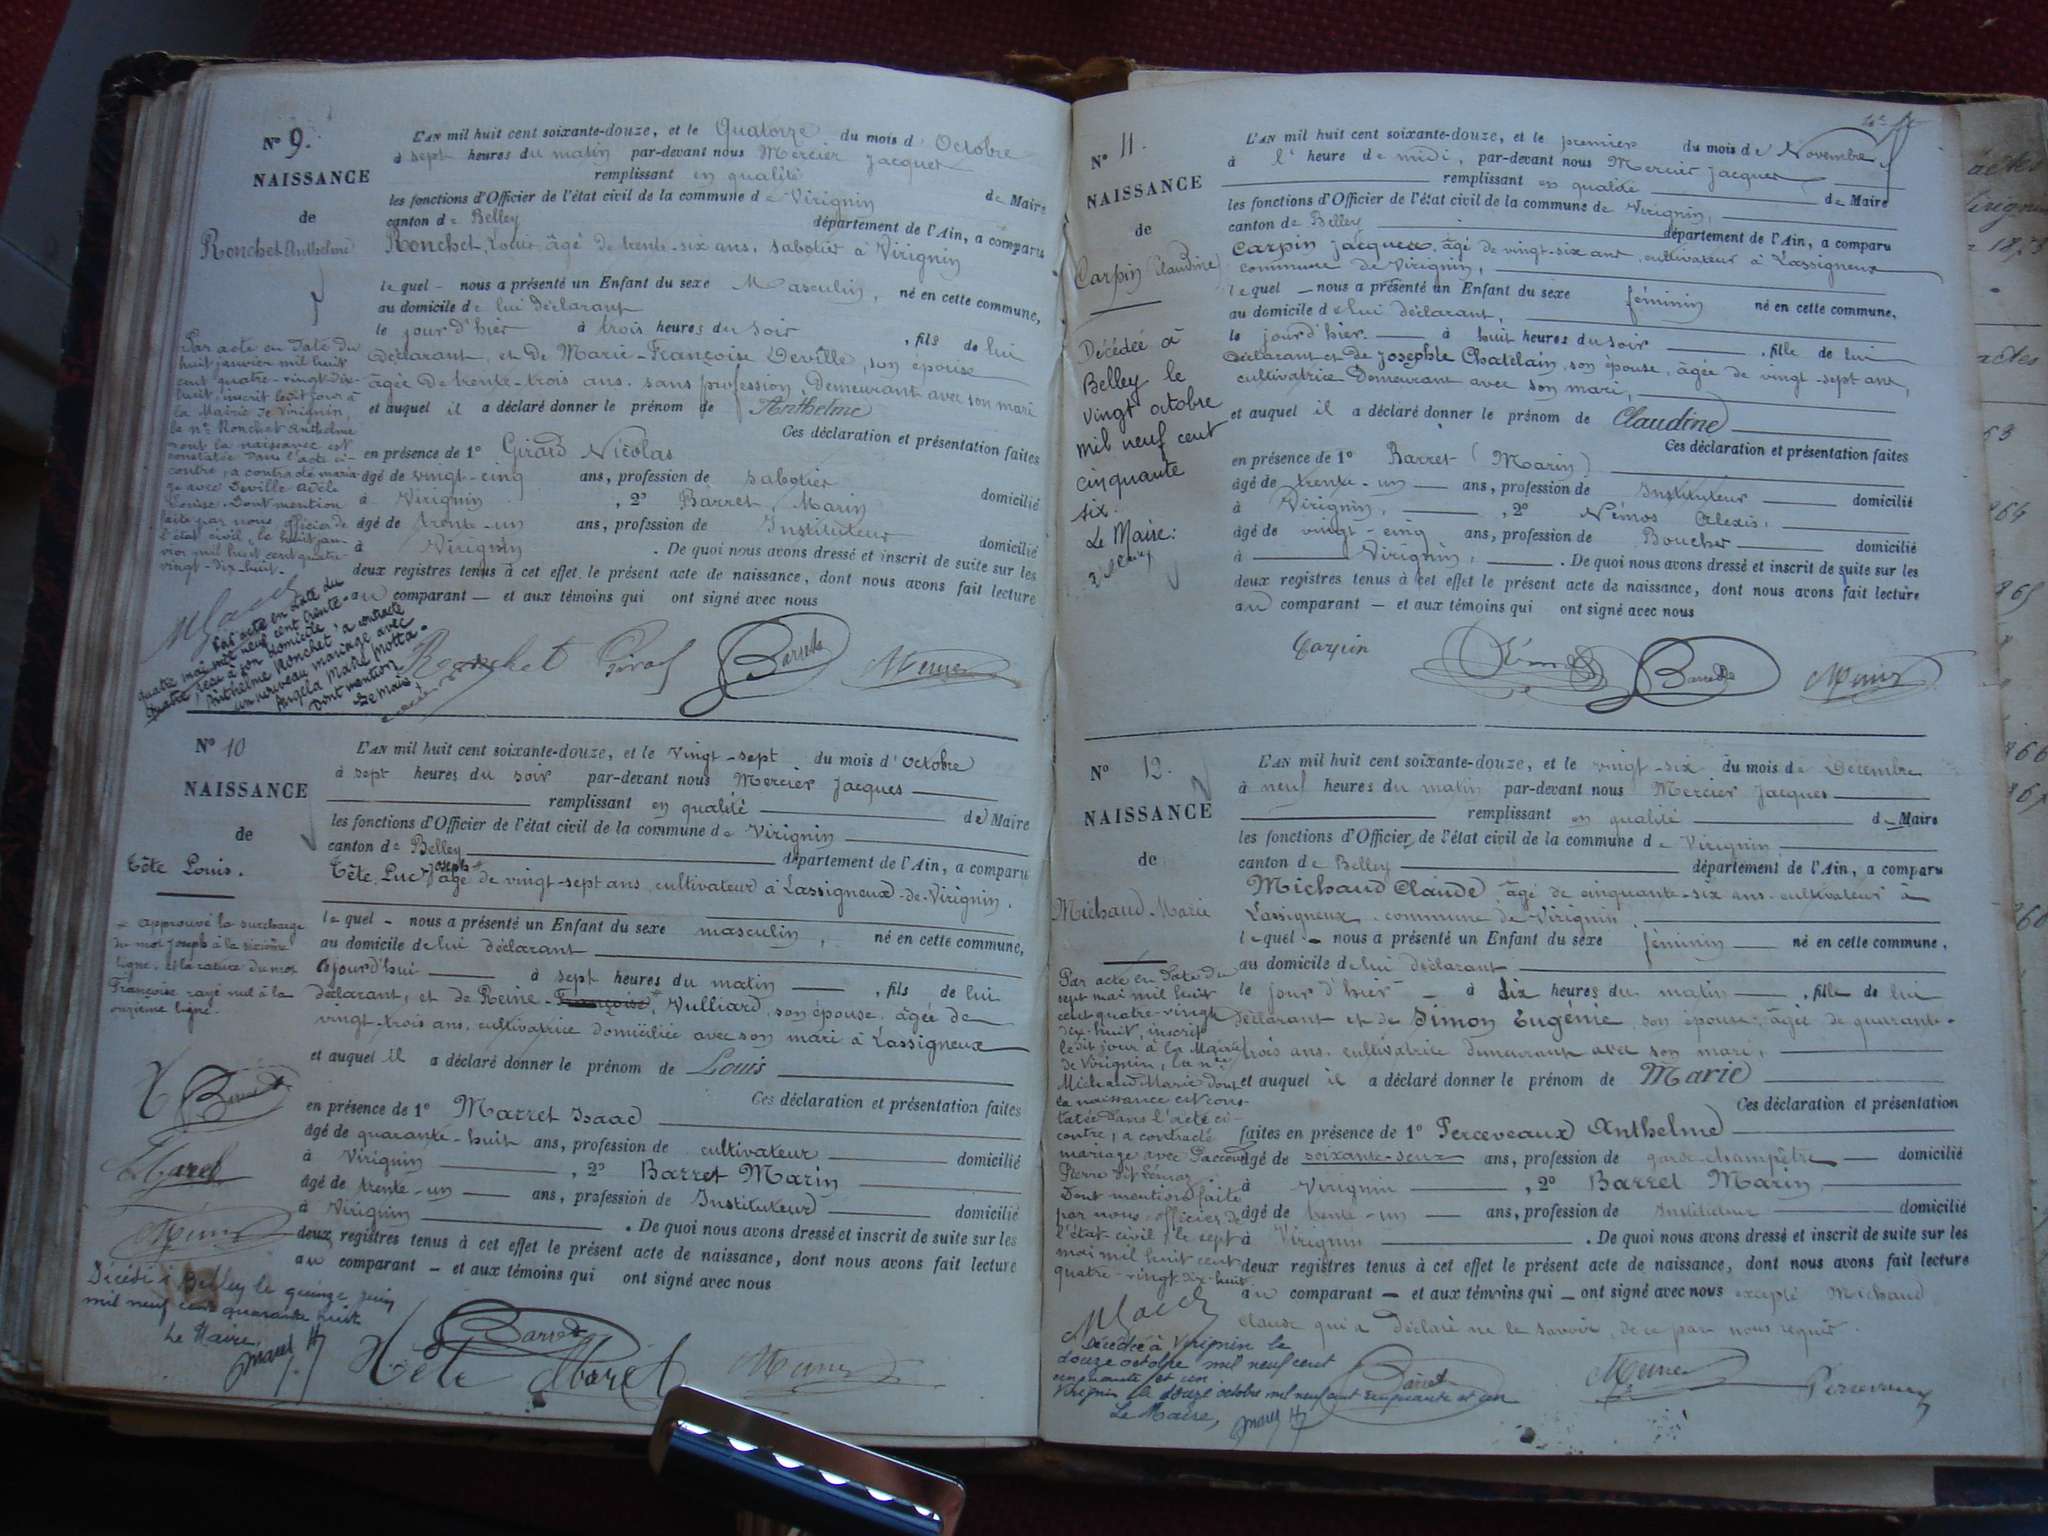 N° 9.
NAISSANCE
de
Ronchet Anthelme
L'AN mil huit cent soixante-douze, et le Quatorze du mois d' Octobre
à sept heures du matin par-devant nous Mercier Jacques
remplissant en qualité de Maire
les fonctions d'Officier de l'état civil de la commune de Virignin
canton de Belley département de l'Ain, a comparu
Ronchet Louis, âgé de trente-six ans, sabotier à Virignin
lequel - nous a présenté un Enfant du sexe Masculin, né en cette commune,
au domicile de lui déclarant
le jour d'hier à trois heures du soir, fils de lui
déclarant, et de Marie-Françoise Deville, son épouse
âgée de trente-trois ans, sans profession, demeurant avec son mari
et auquel il a déclaré donner le prénom de Anthelme
Ces déclaration et présentation faites
en présence de 1° Girard Nicolas
âgé de vingt-cinq ans, profession de sabotier domicilié
à Virignin, 2° Barret Marin
âgé de trente-un ans, profession de Instituteur domicilié
à Virignin. De quoi nous avons dressé et inscrit de suite sur les
deux registres tenus à cet effet le présent acte de naissance, dont nous avons fait lecture
au comparant - et aux témoins qui ont signé avec nous
Par acte en date du
huit janvier mil huit
cent quatre-vingt-dix-
huit, inscrit ledit jour à
la Mairie de Virignin,
le né Ronchet Anthelme
dont la naissance est
constatée dans l'acte ci-
contre, a contracté maria-
ge avec Deville Adèle
Louise. Dont mention
faite par nous, officier de
l'état civil, le huit jan-
vier mil huit cent quatre-
vingt-dix-huit.
Par acte en date du
quatre mai mil neuf cent trente-
quatre, reçu à son domicile
Anthelme Ronchet a contracté
un nouveau mariage avec
Angela Marie Motta.
Dont mention
Le Maire
Ronchet Girard Barret Mercier
N° 10
NAISSANCE
de
Tête Louis.
L'AN mil huit cent soixante-douze, et le vingt-sept du mois d' octobre
à sept heures du soir par-devant nous Mercier Jacques
remplissant en qualité de Maire
les fonctions d'Officier de l'état civil de la commune de Virignin
canton de Belley département de l'Ain, a comparu
Tête Luc-Joseph âgé de vingt-sept ans, cultivateur à Lassigneux-de-Virignin.
lequel - nous a présenté un Enfant du sexe masculin, né en cette commune,
au domicile de lui déclarant
ce jourd'hui à sept heures du matin, fils de lui
déclarant, et de Reine-Françoise, Vulliard, son épouse, âgée de
vingt-trois ans, cultivatrice domiciliée avec son mari à Lassigneux
et auquel il a déclaré donner le prénom de Louis
Ces déclaration et présentation faites
en présence de 1° Marret Isaac
âgé de quarante-huit ans, profession de cultivateur domicilié
à Virignin, 2° Barret Marin
âgé de trente-un ans, profession de Instituteur domicilié
à Virignin. De quoi nous avons dressé et inscrit de suite sur les
deux registres tenus à cet effet le présent acte de naissance, dont nous avons fait lecture
au comparant - et aux témoins qui ont signé avec nous
approuvé la surcharge
du mot Joseph à la sixième
ligne, et la rature du mot
Françoise rayé nul à la
onzième ligne.
Décédé à Belley le quinze juin
mil neuf cent quarante huit
Le Maire,
Tête Barret Mercier
N° 11.
NAISSANCE
de
Carpin (Claudine)
L'AN mil huit cent soixante-douze, et le premier du mois de Novembre
à l' heure de midi, par-devant nous Mercier Jacques
remplissant en qualité de Maire
les fonctions d'Officier de l'état civil de la commune de Virignin,
canton de Belley département de l'Ain, a comparu
Carpin Jacques, âgé de vingt-six ans, cultivateur à Lassigneux
commune de Virignin,
lequel - nous a présenté un Enfant du sexe féminin né en cette commune,
au domicile de lui déclarant,
le jour d'hier à huit heures du soir, fille de lui
déclarant et de Josephte Chatelain, son épouse, âgée de vingt-sept ans,
cultivatrice demeurant avec son mari,
et auquel il a déclaré donner le prénom de Claudine
Ces déclaration et présentation faites
en présence de 1° Barret (Marin)
âgé de trente-un ans, profession de Instituteur domicilié
à Virignin, 2° Némos Alexis,
âgé de vingt-cinq ans, profession de Boucher domicilié
à Virignin,. De quoi nous avons dressé et inscrit de suite sur les
deux registres tenus à cet effet le présent acte de naissance, dont nous avons fait lecture
au comparant - et aux témoins qui ont signé avec nous
Décédée à
Belley le
vingt octobre
mil neuf cent
cinquante
six.
Le Maire:
Carpin Barret Mercier
N° 12.
NAISSANCE
de
Michaud Marie
L'AN mil huit cent soixante-douze, et le vingt-six du mois de Décembre
à neuf heures du matin par-devant nous Mercier Jacques
remplissant en qualité de Maire
les fonctions d'Officier de l'état civil de la commune de Virignin
canton de Belley département de l'Ain, a comparu
Michaud Claude, âgé de cinquante-six ans, cultivateur à
Lassigneux, commune de Virignin
lequel - nous a présenté un Enfant du sexe féminin né en cette commune,
au domicile de lui déclarant
le jour d'hier - à dix heures du matin, fille de lui
déclarant et de Simon Eugénie, son épouse, âgée de quarante-
trois ans, cultivatrice demeurant avec son mari,
et auquel il a déclaré donner le prénom de Marie
Ces déclaration et présentation
faites en présence de 1° Perceveaux Anthelme
âgé de soixante-deux ans, profession de garde-champêtre domicilié
à Virignin, 2° Barret Marin,
âgé de trente-un ans, profession de Instituteur domicilié
à Virignin. De quoi nous avons dressé et inscrit de suite sur les
deux registres tenus à cet effet le présent acte de naissance, dont nous avons fait lecture
au comparant - et aux témoins qui - ont signé avec nous excepté Michaud
Claude qui a déclaré ne le savoir, de ce par nous requis.
Par acte en date du
sept mai mil huit
cent quatre-vingt
dix-huit, inscrit
ledit jour à la Mairie
de Virignin, la née
Michaud Marie dont
la naissance est cons-
tatée dans l'acte ci-
contre, a contracté
mariage avec
Pierre dit
Dont mention faite
par nous, officier de
l'état civil, le sept
mai mil huit cent
quatre-vingt-dix-huit.
Décédée à Virignin le
douze octobre mil neuf cent
cinquante et un
Virignin le douze octobre mil neuf cent cinquante et un
Le Maire,
Barret Mercier Perceveaux